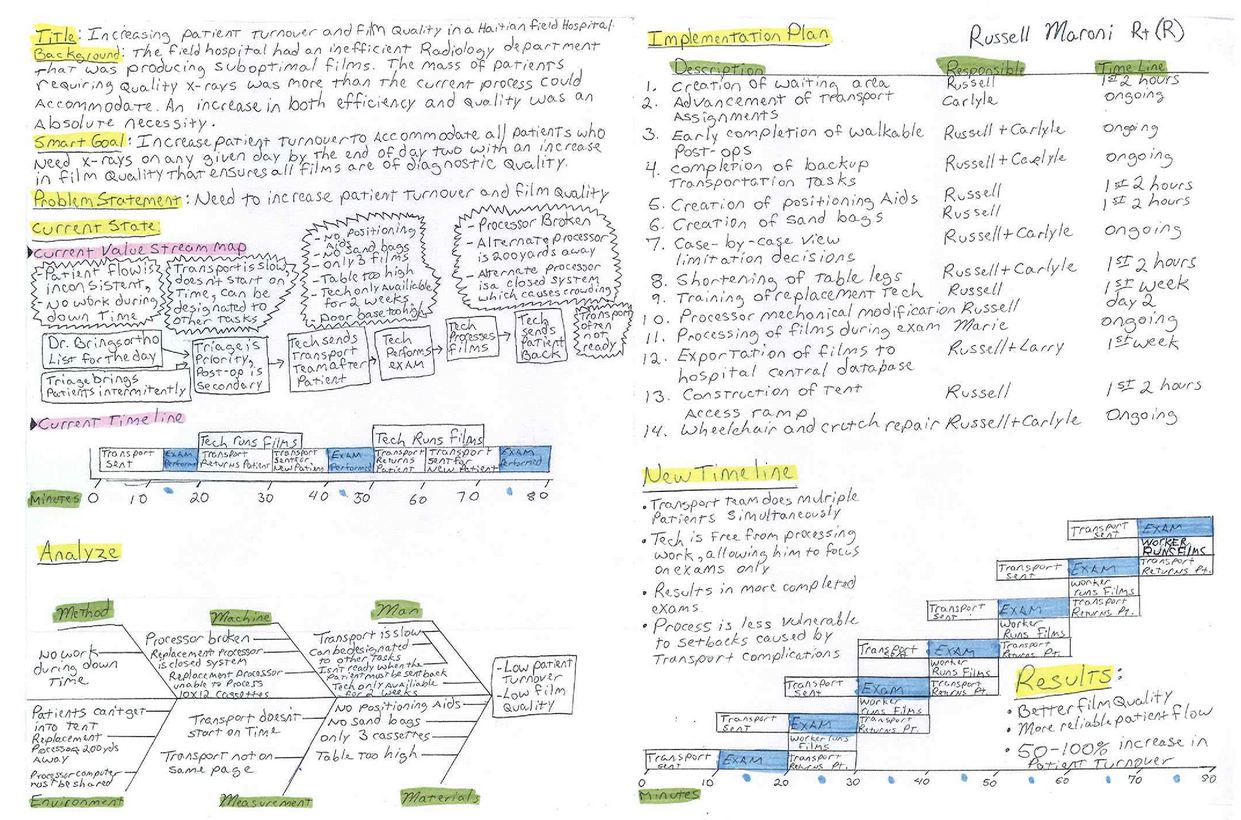 Title: Increasing patient Turnover and film Quality in a Haitian field Hospital.
Background: The field hospital had an inefficient Radiology department
that was producing suboptimal films. The mass of patients
requiring Quality x-rays was more than the current process could
Accommodate. An increase in both efficiency and Quality was an
Absolute necessity.
Smart Goal: Increase patient Turnover to Accommodate all patients who
Need x-rays on any given day by the end of day two with an increase
in film Quality that ensures all films are of diagnostic Quality.
Problem Statement: Need to increase patient Turnover and film Quality
Current State:
Current Value Stream map
- Patient flow is
inconsistent,
- No work during
down Time
Transport is slow
doesn't start on
Time, can be
designated to
other Tasks
- No positioning
Aids
- No sand bags
- only 3 films
- Table too high
- Tech only Available
for 2 weeks.
- Door base to high
- Processor Broken
- Alternate processor
is 200 yards away
- Alternate processor
is a closed system
which causes crowding
Transport
often
not
ready
Dr. Brings ortho
List for the day
Triage brings
Patients intermitently
Triage is
Priority,
Post-op is
Secondary
Tech sends
Transport
Team after
Patient
Tech
Performs
exam
Tech
Processes
films
Tech
sends
Patient
Back
Current Timeline
Tech runs films
Tech Runs films
Transport
sent
Exam
Performed
Transport
Returns Patient
Transport
sent for
New Patient
Exam
Performed
Transport
Returns
Patient
Transport
sent for
New Patient
Exam
Performed
Minutes 0 10 20 30 40 50 60 70 80
Analyze
Method
Machine
Man
No work
during down
Time
Processor broken
Replacement Processor
is closed system
Replacement Processor
unable to Process
10x12 cassettes
Transport is slow
Can be designated
to other Tasks
Isn't ready when the
Patient must be sent back
Tech only Available
for 2 weeks
- Low patient
Turnover
- Low film
Quality
Patients can't get
into Tent
Replacement
Processor 200 yds
Away
Processor computer
must be shared
Transport doesn't
start on Time
Transport not on
same page
No positioning Aids
No sand bags
only 3 cassettes
Table too high
Environment
Measurement
Materials
Implementation Plan
Russell Maroni Rt (R)
Description Responsible Time Line
1. Creation of waiting area Russell 1st 2 hours
2. Advancement of Transport Carlyle ongoing
Assignments
3. Early completion of walkable Russell + Carlyle ongoing
Post-ops
4. completion of backup Russell + Carlyle ongoing
Transportation Tasks
5. Creation of positioning Aids Russell 1st 2 hours
6. Creation of sand bags Russell 1st 2 hours
7. Case-by-case view Russell + Carlyle ongoing
limitation decisions
8. Shortening of Table legs Russell + Carlyle 1st 2 hours
9. Training of replacement Tech Russell 1st week
10. Processor mechanical modification Russell day 2
11. Processing of films during exam Marie ongoing
12. Exportation of films to Russell + Larry 1st week
hospital central database
13. Construction of Tent Russell 1st 2 hours
Access ramp
14. Wheelchair and crutch repair Russell + Carlyle Ongoing
New Timeline
• Transport team does multiple
Patients Simultaneously
• Tech is Free from processing
work, allowing him to focus
on exams only
• Results in more completed
exams
• Process is less vulnerable
to setbacks caused by
Transport complications
Transport
sent
EXAM
Worker
Runs Films
Transport
sent
EXAM
Transport
Returns Pt.
worker
runs Films
Transport
sent
EXAM
Transport
Returns Pt.
Worker
Runs Films
Transport
sent
EXAM
Transport
Returns Pt.
Worker
Runs Films
Transport
sent
EXAM
Transport
Returns Pt
Worker
Runs Films
Transport
sent
EXAM
Transport
Returns Pt.
Worker runs
Films
Transport
sent
EXAM
Transport
Returns Pt.
0 10 20 30 40 50 60 70 80
Minutes
Results:
• Better film Quality
• More reliable patient flow
• 50-100% increase in
Patient Turnover